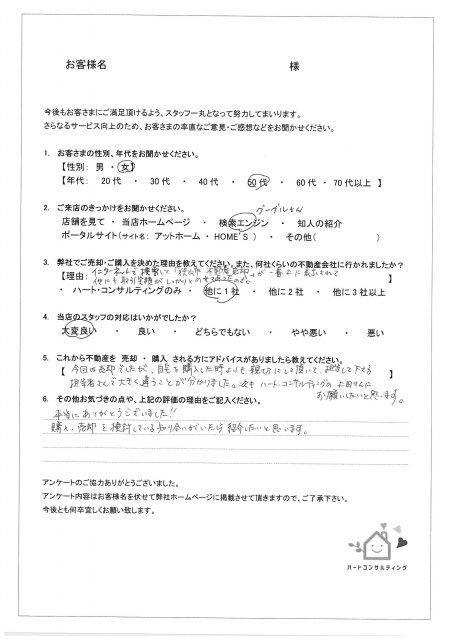 お客様名 様
今後もお客さまにご満足頂けるよう、スタッフ一丸となって努力してまいります。
さらなるサービス向上のため、お客さまの率直なご意見・ご感想などをお聞かせください。
1. お客さまの性別、年代をお聞かせください。
【性別： 男 ・ 女】
【年代： 20代 ・ 30代 ・ 40代 ・ 50代 ・ 60代 ・ 70代以上 】
2. ご来店のきっかけをお聞かせください。
グーグルさん
店舗を見て ・ 当店ホームページ ・ 検索エンジン ・ 知人の紹介
ポータルサイト（サイト名： アットホーム ・ HOME'S ） ・ その他（ ）
3. 弊社でご売却・ご購入を決めた理由を教えてください。また、何社くらいの不動産会社に行かれましたか？
【理由： インターネットで検索して「狭山市 不動産売却」が一番上に表示されて
他にも取引実績がしっかりと 】
・ ハート・コンサルティングのみ ・ 他に1社 ・ 他に2社 ・ 他に3社以上
4. 当店のスタッフの対応はいかがでしたか？
大変良い ・ 良い ・ どちらでもない ・ やや悪い ・ 悪い
5. これから不動産を 売却 ・ 購入 される方にアドバイスがありましたら教えてください。
【 今回は売却でしたが、自宅を購入した時よりも親切にして頂いて、担当して下さる
担当者さんで大きく違うことが分かりました。次も ハート・コンサルティングの 上田さんに
お願いしたいと思います。 】
6. その他お気づきの点や、上記の評価の理由をご記入ください。
本当にありがとうございました!!
購入、売却を検討している知り合いがいたら紹介したいと思います。
アンケートのご協力ありがとうございました。
アンケート内容はお客様名を伏せて弊社ホームページに掲載させて頂きますので、ご了承下さい。
今後とも何卒宜しくお願い致します。
ハートコンサルティング